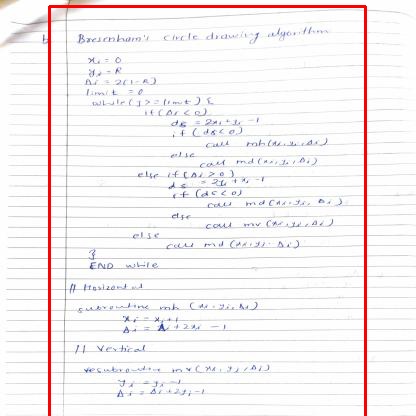 Bresenham's circle drawing algorithm
xi = 0
yi = R
Δi = 2(1-R)
limit = 0
while (y >= limit) {
if (Δi < 0)
ds = 2xi + yi - 1
if (ds < 0)
call mh(xi, yi, Δi)
else
call md(xi, yi, Δi)
else if (Δi > 0)
ds = 2yi + xi - 1
if (ds < 0)
call md (xi, yi, Δi)
else
call mv (xi, yi, Δi)
else
call md (xi, yi, Δi)
}
END while
// Horizontal
subroutine mh (xi, yi, Δi)
xi = xi + 1
Δi = Δi + 2xi - 1
// Vertical
subroutine mv (xi, yi, Δi)
yi = yi - 1
Δi = Δi + 2yi - 1